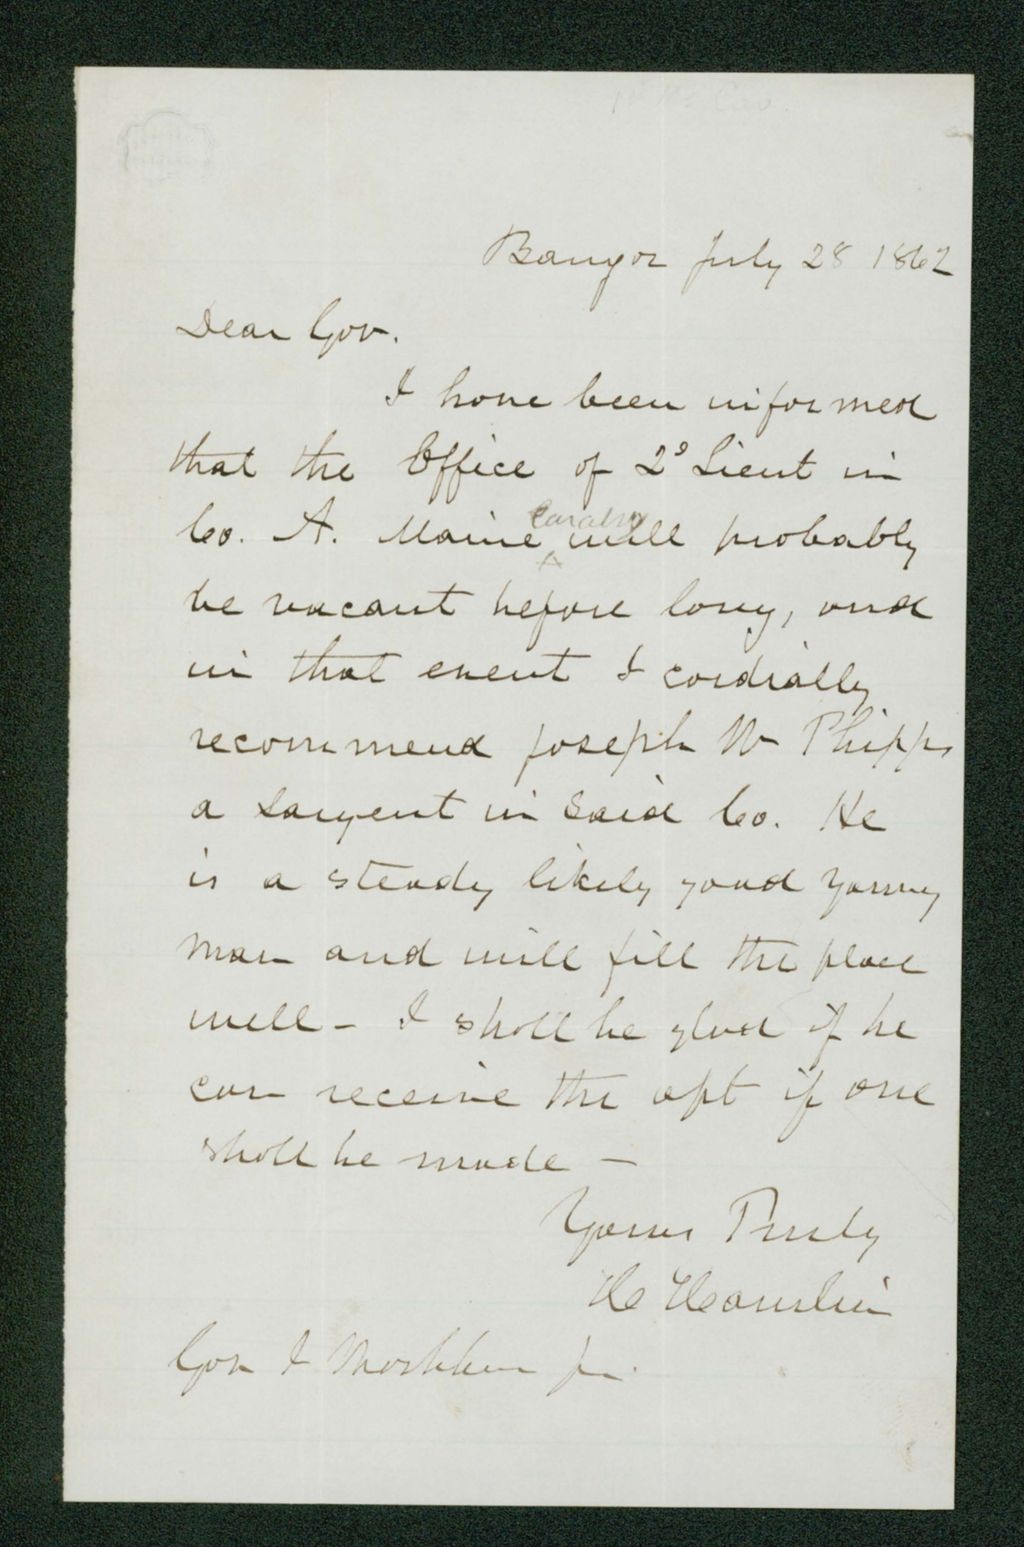 1st Me Cav.
Bangor July 28 1862
Dear Gov.
I have been informed
that the Office of 2d Lieut in
Co. A. Maine ^Cavalry will probably
be vacant before long, and
in that event I cordially
recommend Joseph W Phipps
a Sargent in Said Co. He
is a steady likely good young
man and will fill the place
well - I shall be glad if he
can receive the apt if one
shall be made -
Yours Truly
H Hamlin
Gov I Washburn Jr.